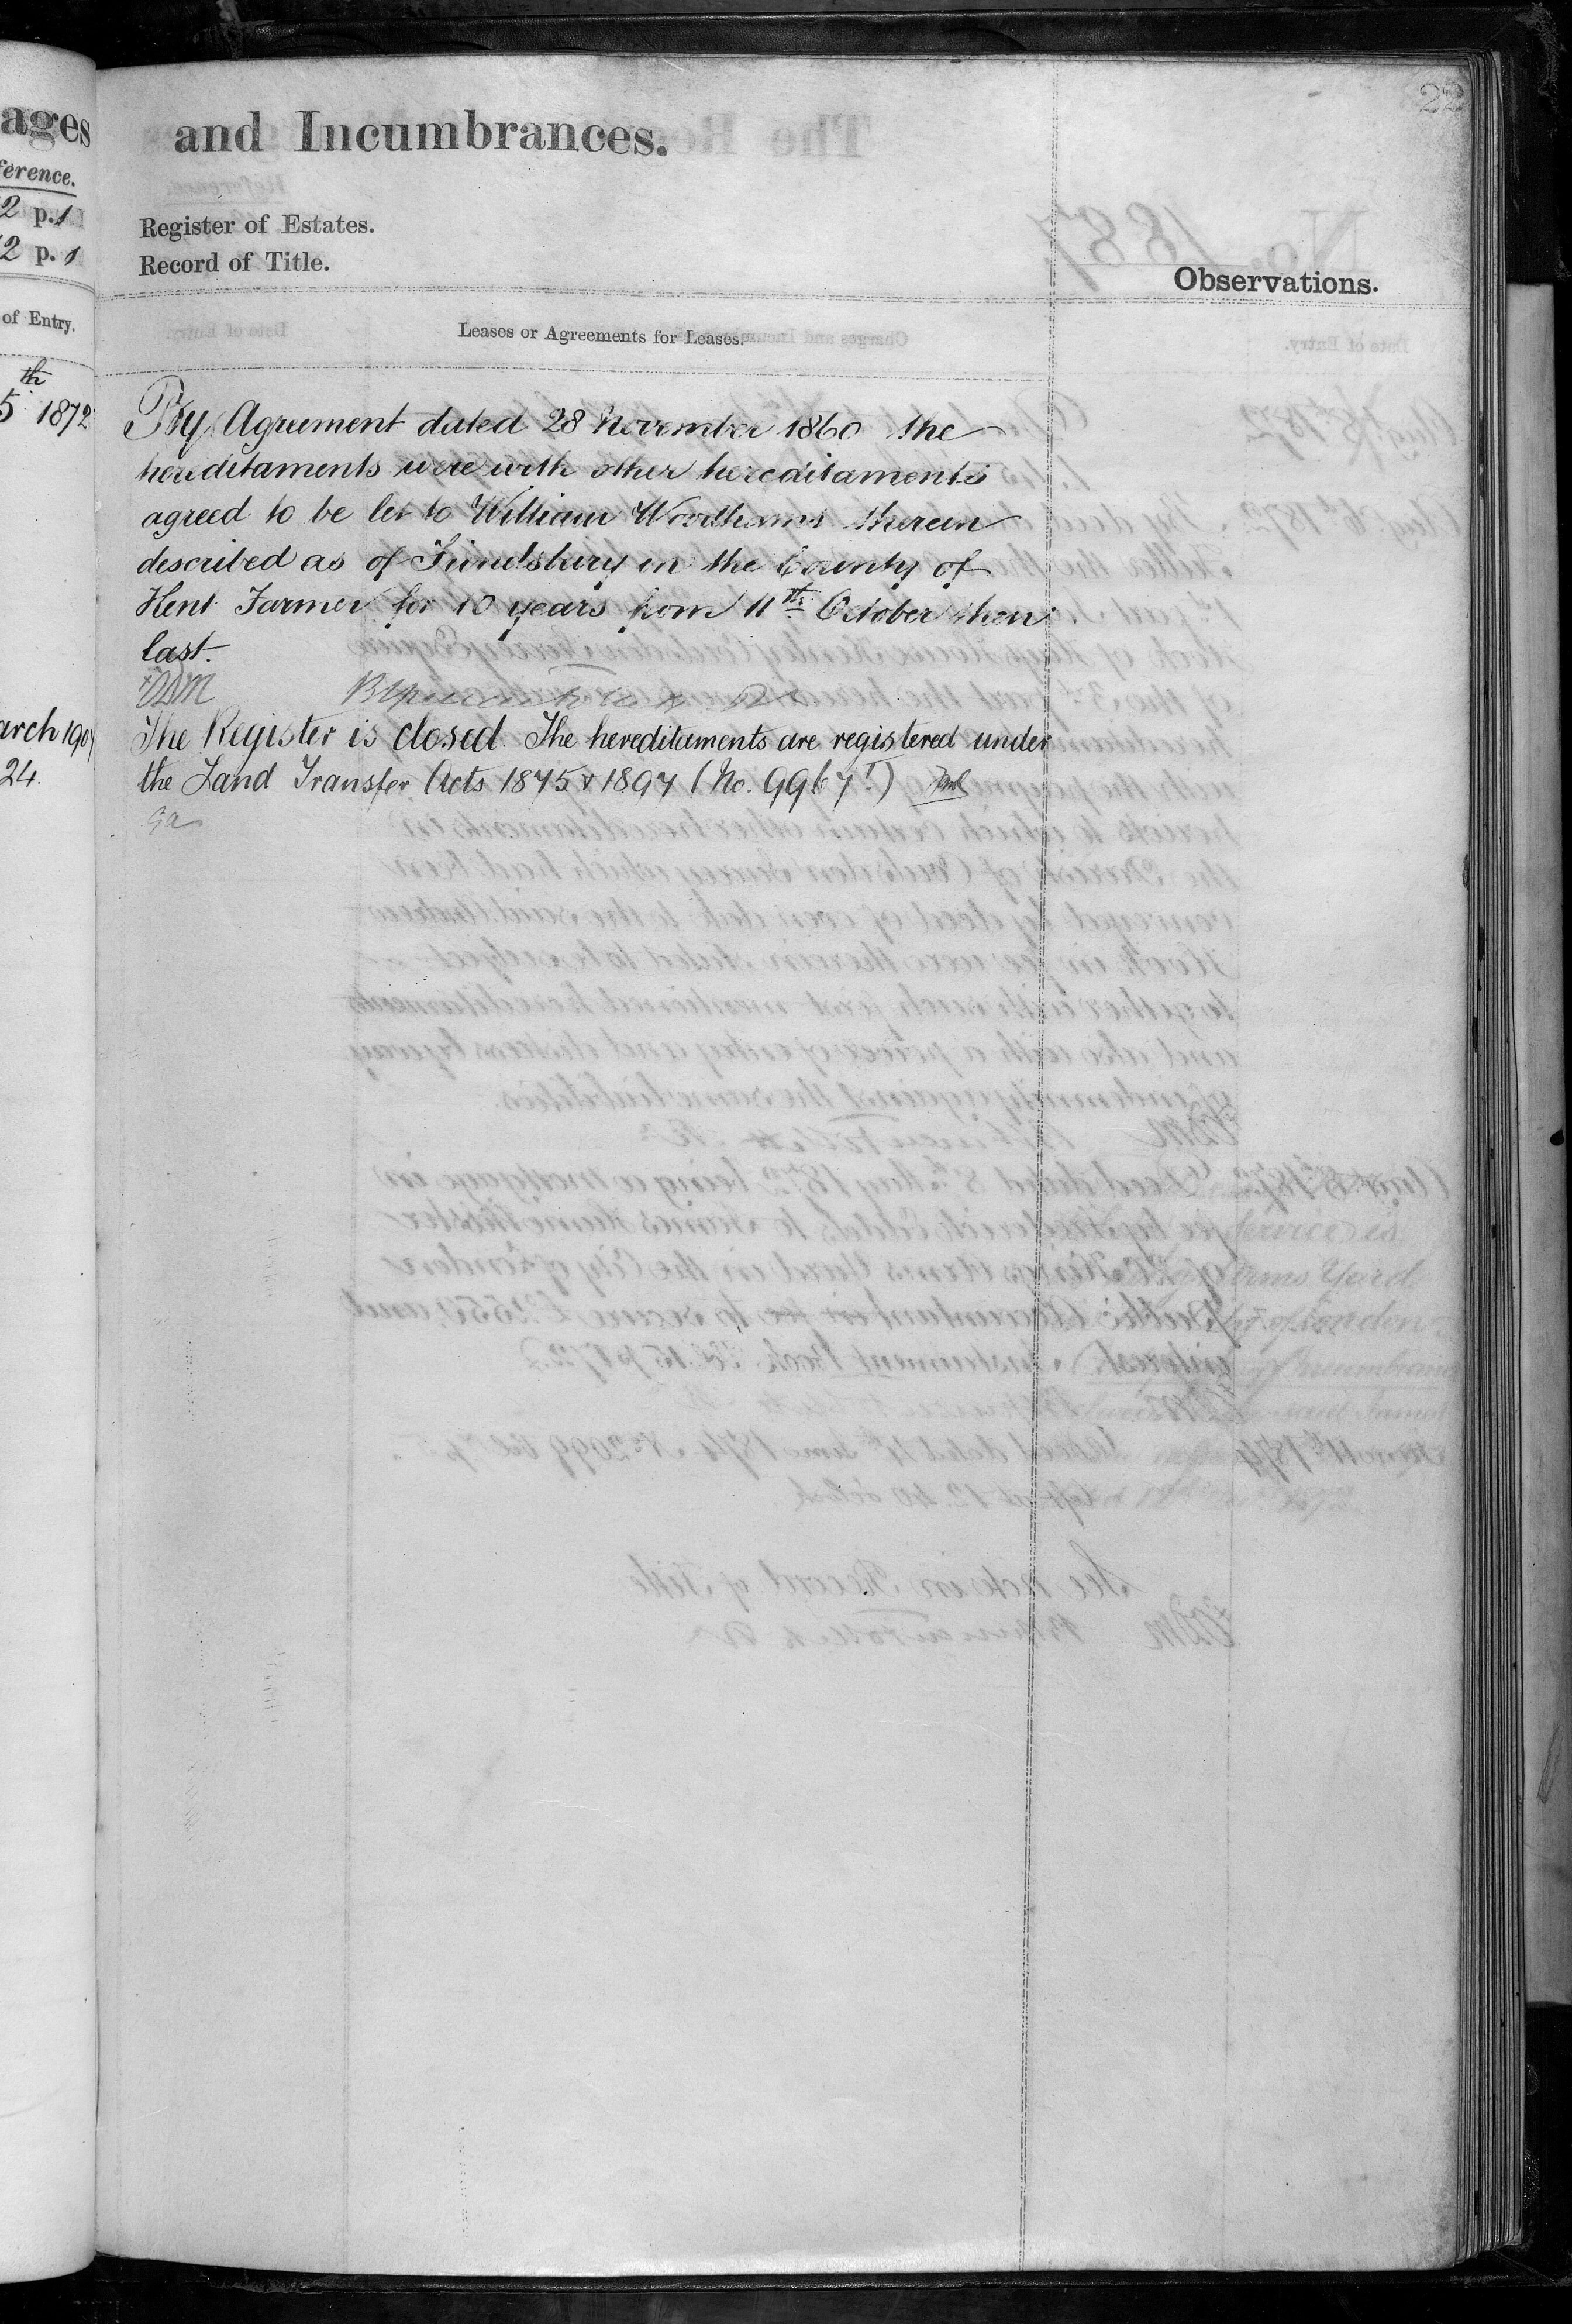 22
ages
ference.
2 p. 1
2 p. 1
of Entry.
5th 1872
arch 190
24.
and Incumbrances.
Register of Estates.
Record of Title.
Observations.
Leases or Agreements for Leases.
By Agreement dated 28 November 1860 the
hereditaments were with other hereditaments
agreed to be let to William Woodhams therein
described as of Frindsbury in the County of
Kent Farmer for 10 years from 11th October then
last.
The Register is closed. The hereditaments are registered under
the Land Transfer Acts 1875 & 1897 (No. 99671)